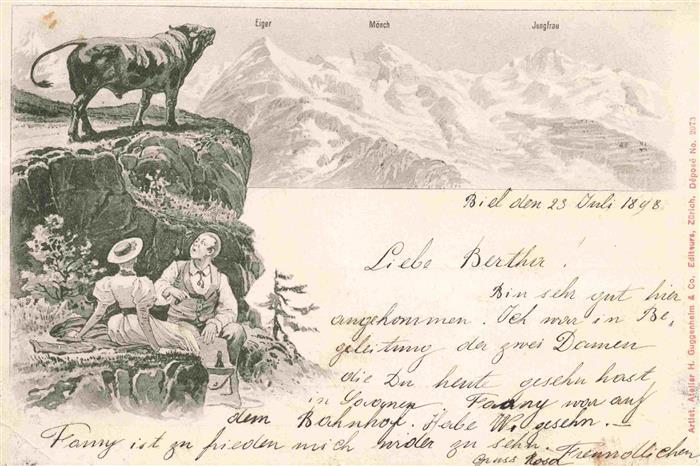 Eiger
Mönch
Jungfrau
Biel den 23 Juli 1898
Liebe Berther!
Bin sehr gut hier
angekommen. Ich war in Be,
geleitung der zwei Damen
die Du heute gesehn hast
in Fanny war auf
dem Bahnhof. Habe gesehn. —
Fanny ist zu frieden mich wider zu sehn. Freundlichen
Gruss Rosa
Artist. Atelier H. Guggenheim & Co. Editeurs, Zürich. Déposé No. 2073